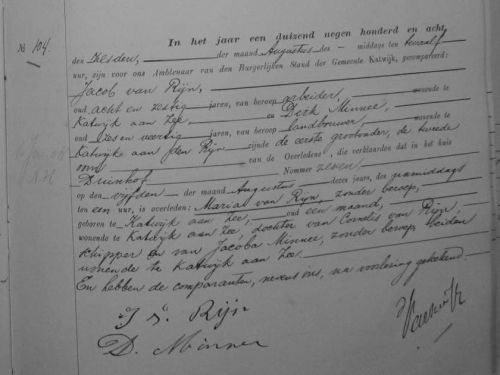 № 104.
In het jaar een duizend negen honderd en acht,
den zesden, der maand Augustus des middags ten twaalf
uur, zijn voor ons Ambtenaar van den Burgerlijken Stand der Gemeente Katwijk, gecompareerd:
Jacob van Rijn,
oud acht en zestig jaren, van beroep arbeider, wonende te
Katwijk aan Zee en Dirk Minnee,
oud zes en veertig jaren, van beroep landbouwer, wonende te
Katwijk aan den Rijn zijnde de eerste grootvader, de tweede
oom van de Overledene, die verklaarden dat in het huis
Duinhof Nommer zeven
op den vijfden der maand Augustus dezes jaars, des namiddags
ten een uur, is overleden: Maria van Rijn, zonder beroep,
geboren te Katwijk aan Zee, oud een maand,
wonende te Katwijk aan Zee, dochter van Cornelis van Rijn,
schipper en van Jacoba Minnee, zonder beroep beiden
wonende te Katwijk aan Zee.
En hebben de comparanten, nevens ons, na voorlezing geteekend.
J v. Rijn
D. Minnee